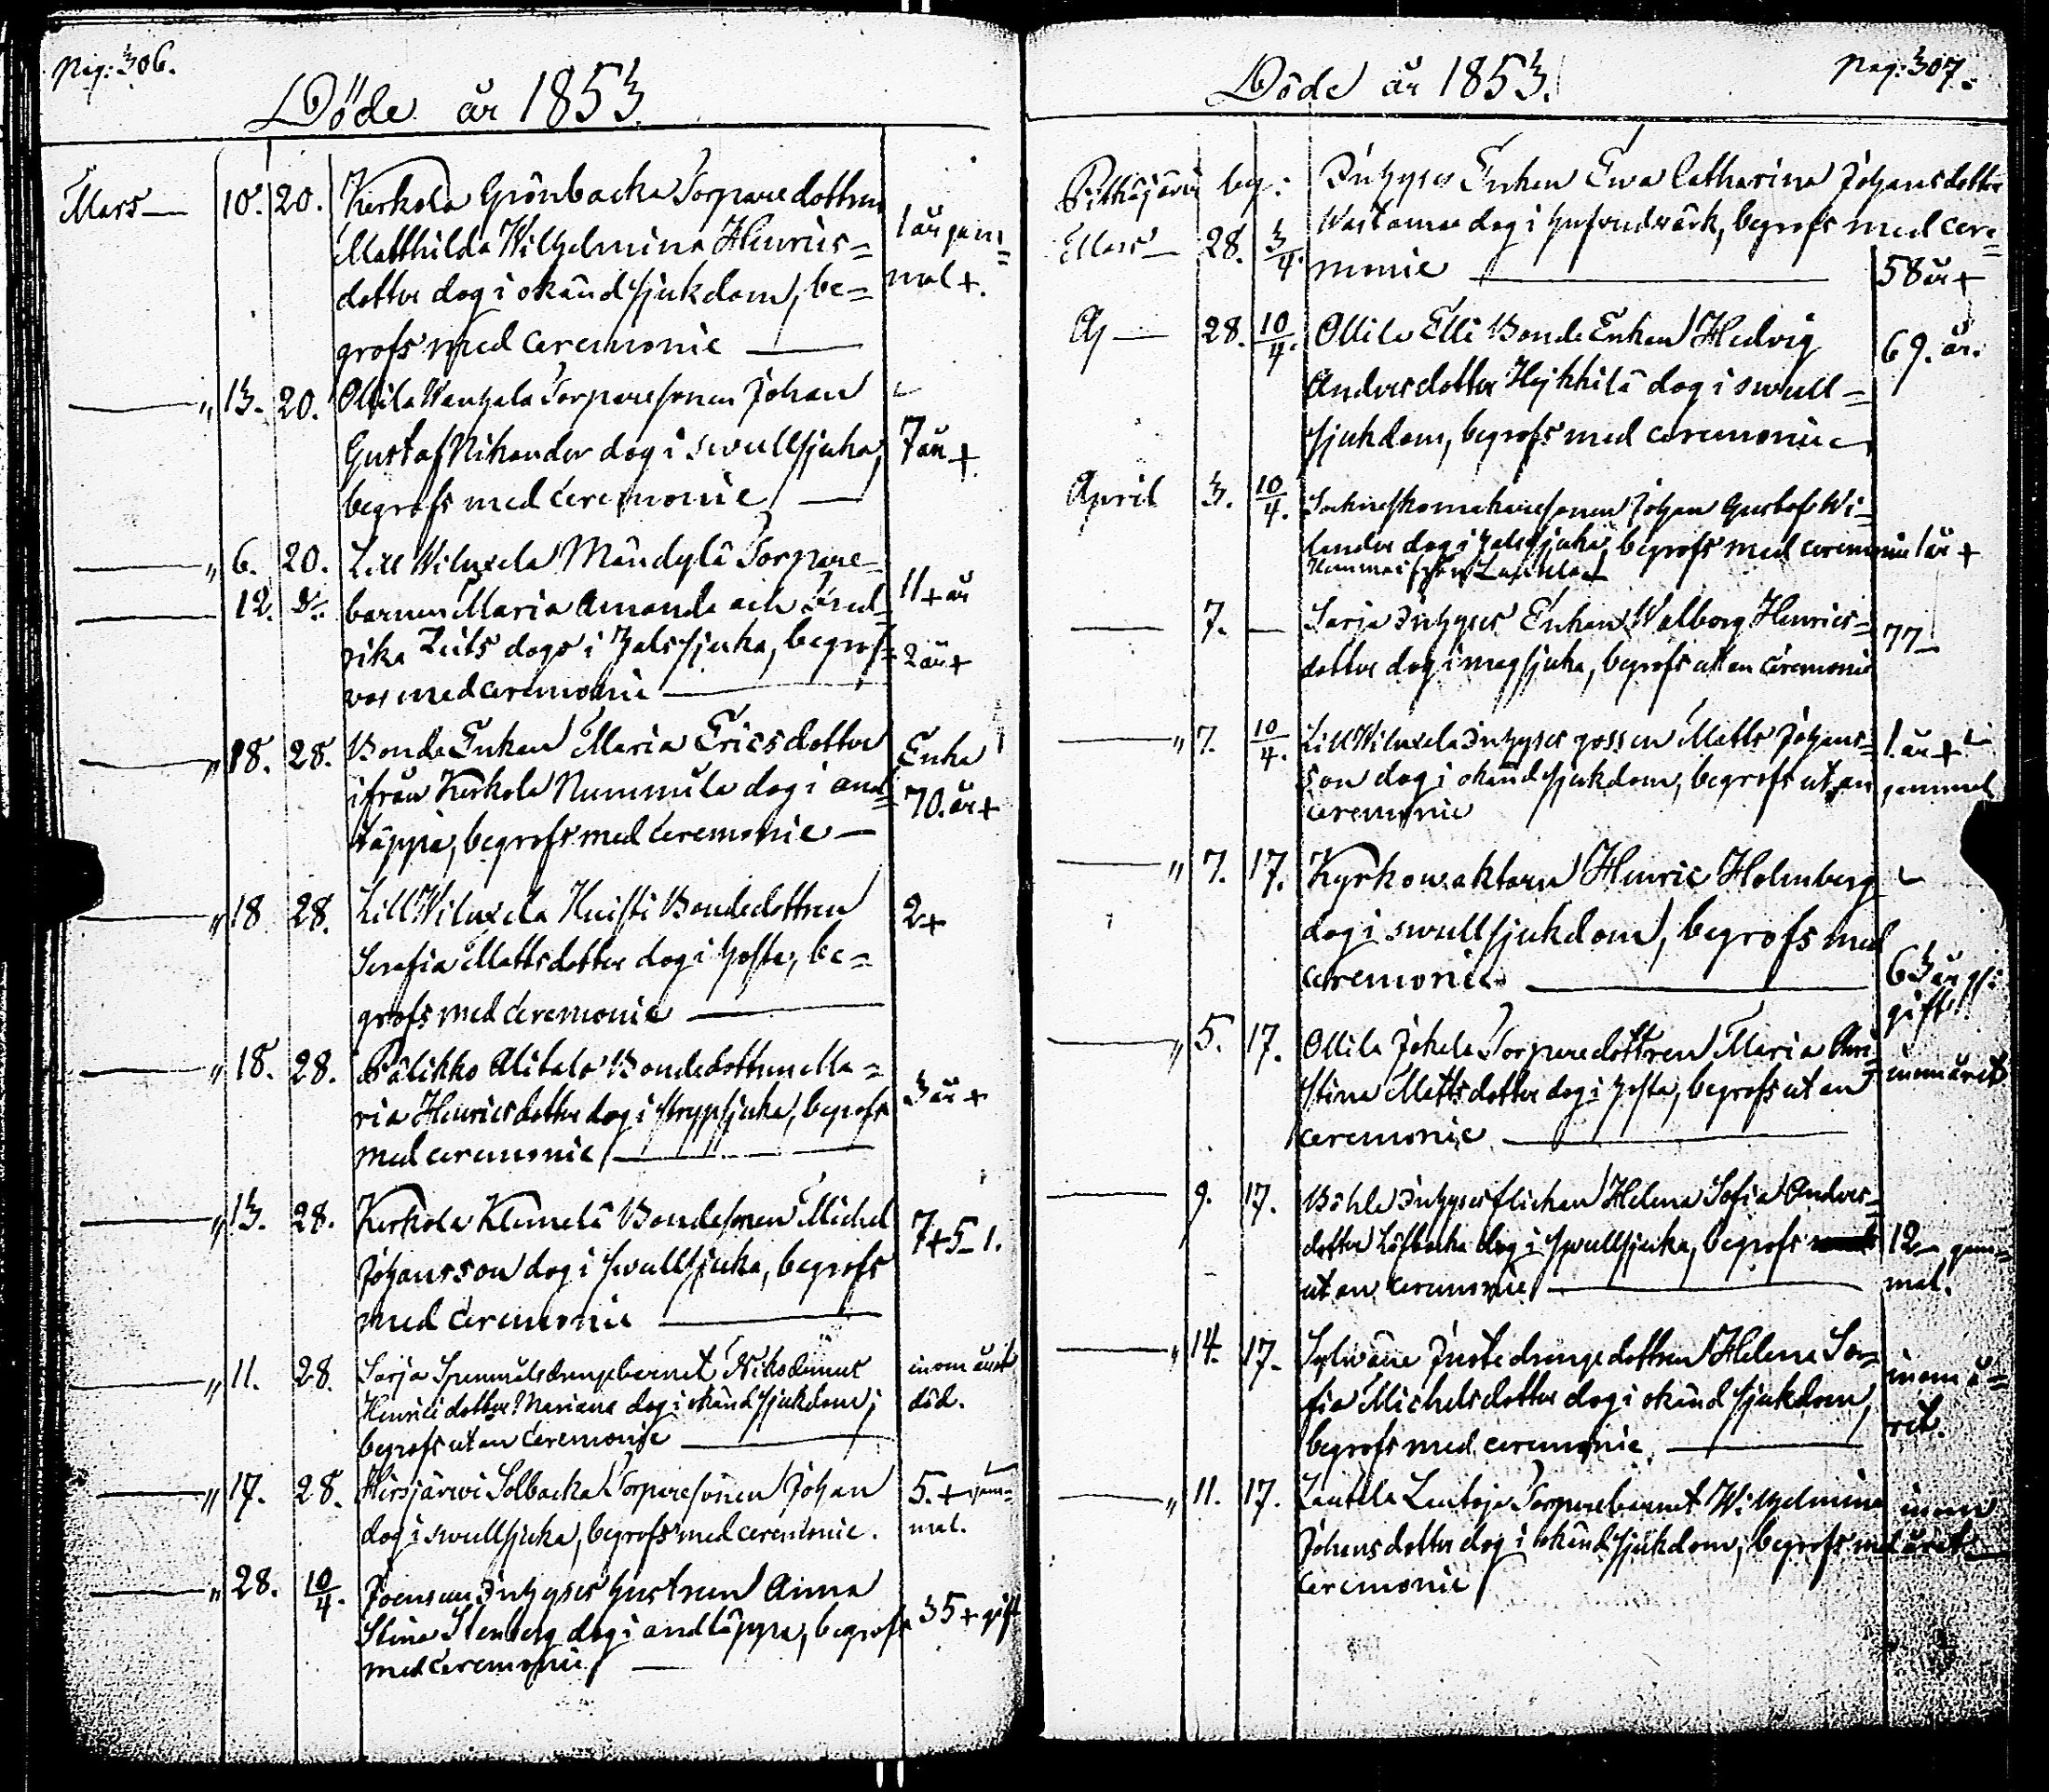 Pag: 306.
Döde år 1853
Mars 10. 20. Kerkola Grönbacka Torparedottren
Matthilda Wilhelmina Henrics=
dotter dog i okänd sjukdom, be=
grofs med Ceremonie
1 år gam=
mal +.
" 13. 20. Ollila Wanhala Torparesonen Johan
Gustaf Nikander dog i swullsjuka,
begrofs med Ceremonie
7 år +
" 6. 20. Lill Wiluxela Mändylä Torpare=
12. Do barnen Maria Amanda och Fred=
rika Zeits dogo i halssjuka, begrof=
vos med Ceremonie
11 + år
2 år +
" 18. 28. Bonde Enkan Maria Ericsdotter
ifrån Kerkola Nummila dog i and=
täppa, begrofs med Ceremonie
Enka
70. år +
" 18 28. Lill Wiluxela Knisti Bondedottren
Serafia Mattsdotter dog i hosta, be=
grofs med Ceremonie
2 +
" 18. 28. Pälikko Alitalo Bondedottren Ma=
ria Henricsdotter dog i strypsjuka, begrofs
med ceremonie
3 år +
" 13. 28. Kerkola Klemelä Bondesonen Michel
Johansson dog i swullsjuka, begrofs
med Ceremonie
7 + 5 - 1.
" 11. 28. Sarja drengebarnet
Henricidotter Mariana dog i okänd sjukdom,
begrofs utan Ceremonie
inom året
död.
" 17. 28. Hirsjärwi Solbacka Torparesonen Johan
dog i swullsjuka, begrofs med ceremonie.
5. + gam=
mal.
" 28. 10/4. Joensuu Inhyses hustrun Anna
Stina Stenberg dog i andtäppa, begrofs
med Ceremonie
35 + gift
Pag: 307.
Döde år 1853.
Pitkäjärvi by: Inhyses Enkan Ewa Catharina Johansdotter
Mars 28. 3/4. Wastamaa dog i hufvudwärk, begrofs med cere=
monie
58 år +
28. 10/4. Ollila Elli Bonde Enkan Hedvig
Andersdotter Heikkilä dog i swull=
sjukdom, begrofs med ceremonie
69. år.
April 3. 10/4. Sockneskomakaresonen Johan Gustaf Wi=
lander dog i halssjuka, begrofs med ceremonie 1 år +
7. Sarja Inhyses Enkan Walborg Henrics=
dotter dog i magsjuka, begrofs utan Ceremonie
77
" 7. 10/4. Lill Wiluxela Inhyses gossen Matts Johans=
son dog i okänd sjukdom, begrofs utan
ceremonie
1. år +
gammal
" 7. 17. Kyrkowaktaren Henric Holmberg
dog i swullsjukdom, begrofs med
ceremonie
63 år
gift
" 5. 17. Ollila Jokela Torparedottren Maria Chri=
stina Mattsdotter dog i hosta, begrofs utan
ceremonie
inom året
9. 17. Böhle Inhyses flickan Helena Sofia Anders=
dotter Löfbacka dog i swullsjuka, begrofs
utan Ceremonie
12 gam=
mal.
" 14. 17. Sylwäne Juste drengedottren Helena So=
fia Michelsdotter dog i okänd sjukdom,
begrofs med ceremonie
inom å=
ret.
" 11. 17. Lautela Lautoja Torparebarnet Wilhelmina
Johansdotter dog i okänd sjukdom, begrofs med
Ceremonie
inom
året